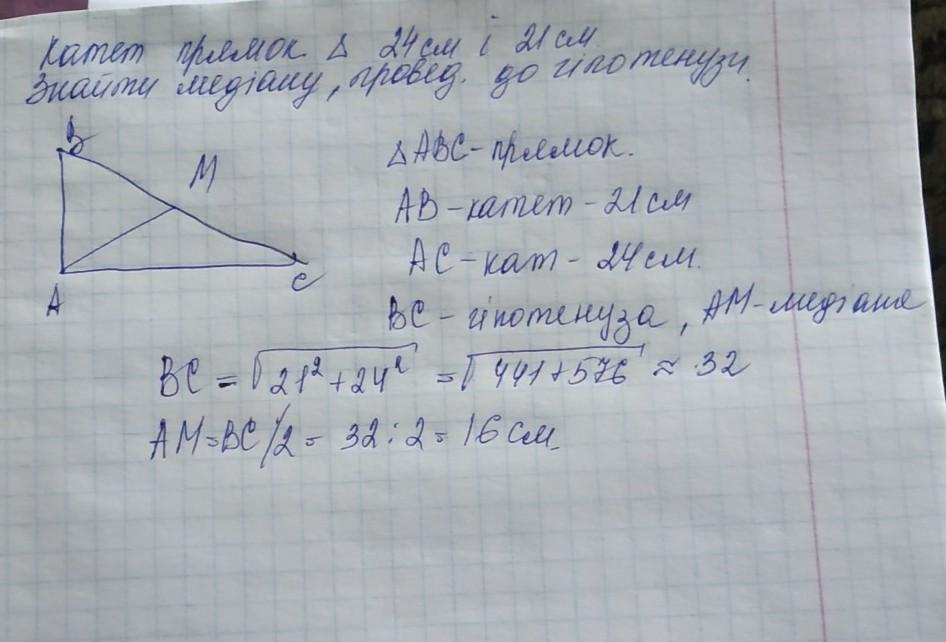 Катет прямок. Δ 24 см і 21 см
Знайти медіану, провед. до гіпотенузи.
B
M
A
C
Δ ABC - прямок.
AB - катет - 21 см
AC - кат - 24 см.
BC - гіпотенуза, AM - медіана
BC = √21² + 24² = √441 + 576 ≈ 32
AM = BC/2 = 32 : 2 = 16 см